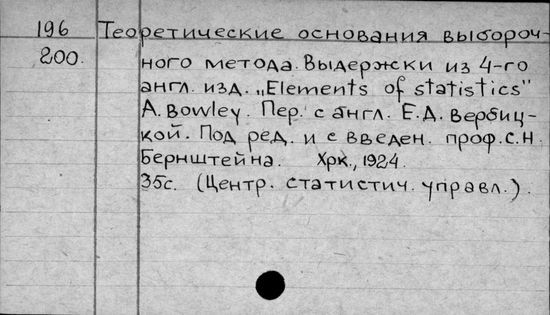 196 Теоретические основания выбороч-
200. ного метода. Выдержки из 4-го
англ. изд. „Elements of statistics"
A. Bowley. Пер. с англ. Е.Д. Вербиц-
кой. Под ред. и с введен. проф. С.Н.
Бернштейна. Хрк., 1924.
35с. (Центр. статистич. управл.).